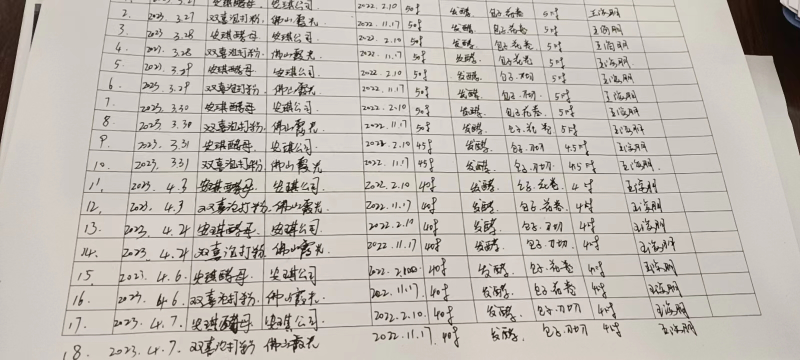 2. 2023. 3.27 双喜泡打粉 佛山霞光 2022.11.17 50g 发酵 包子.花卷 5g
3. 2023. 3.28 安琪酵母 安琪公司 2022.2.10 50g 发酵 包子.花卷 5g
4. 2023. 3.28 双喜泡打粉 佛山霞光 2022.11.17 50g 发酵 包子.花卷 5g
5. 2023. 3.29 安琪酵母 安琪公司 2022.2.10 50g 发酵 包子.刀切 5g
6. 2023. 3.29 双喜泡打粉 佛山霞光 2022.11.17 50g 发酵 包子.刀切 5g
7. 2023. 3.30 安琪酵母 安琪公司 2022.2.10 50g 发酵 包子.花卷 5g
8. 2023. 3.30 双喜泡打粉 佛山霞光 2022.11.17 50g 发酵 包子.花卷 5g
9. 2023. 3.31 安琪酵母 安琪公司 2022.2.10 45g 发酵 包子.刀切 4.5g
10. 2023. 3.31 双喜泡打粉 佛山霞光 2022.11.17 45g 发酵 包子.刀切 4.5g
11. 2023. 4.3 安琪酵母 安琪公司 2022.2.10 40g 发酵 包子.花卷 4g
12. 2023. 4.3 双喜泡打粉 佛山霞光 2022.11.17 40g 发酵 包子.花卷 4g
13. 2023. 4.24 安琪酵母 安琪公司 2022.2.10 40g 发酵 包子.刀切 4g
14. 2023. 4.24 双喜泡打粉 佛山霞光 2022.11.17 40g 发酵 包子.刀切 4g
15. 2023. 4.6. 安琪酵母 安琪公司 40g 发酵 包子.花卷 4g
16. 2023. 4.6. 双喜泡打粉 佛山霞光 2022.11.17. 40g 发酵 包子.花卷 4g
17. 2023. 4.7. 安琪酵母 安琪公司 2022.2.10. 40g 发酵 包子.刀切 4g
18. 2023. 4.7. 双喜泡打粉 佛山霞光 2022.11.17. 40g 发酵 包子.刀切 4g